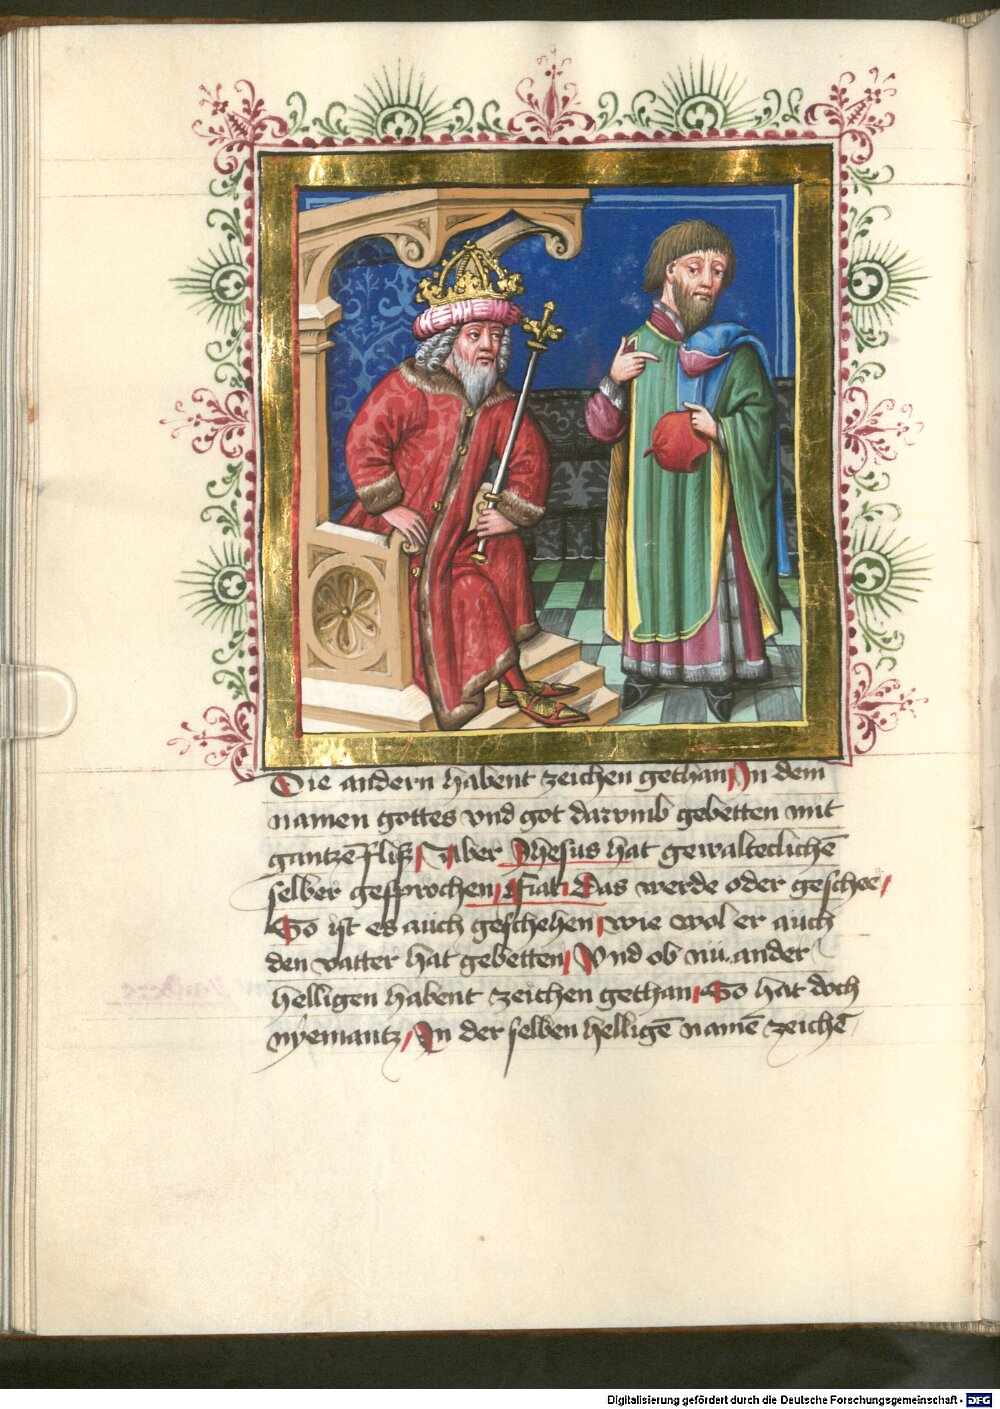 Die andern habent zeichen gethan / In dem
namen gottes vnd got darvmb gebetten mit
gantzē fliß / Aber Jhesus hat gewalteclichē
selber gesprochen / Fiat / Das werde oder geschee /
So ist es auch geschehen / wie wol er auch
den vatter hat gebetten / Vnd ob nu ander
helligen habent zeichen gethan / So hat doch
nyemantz / In der selben helligē namē zeichē
Digitalisierung gefördert durch die Deutsche Forschungsgemeinschaft - DFG